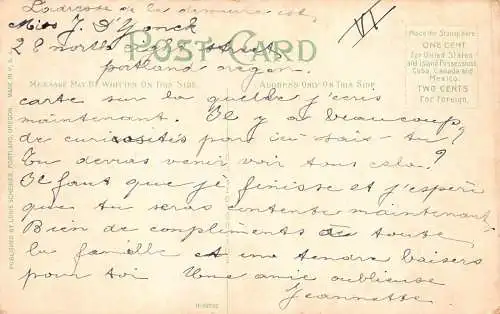 L'adresse de la dernière
Miss J. D'Yonck
28 north street
portland oregon.
POST CARD
MESSAGE MAY BE WRITTEN ON THIS SIDE.
ADDRESS ONLY ON THIS SIDE.
Place the Stamp here
ONE CENT
For United States
and Island Possessions
Cuba, Canada and
Mexico.
TWO CENTS
For Foreign.
VI
carte sur la quelle j'écris
maintenant. Il y a beaucoup
de curiosités par ici sais-tu?
Tu devras venir voir tous cela?
Il faut que je finisse et j'espère
que tu seras contente maintenant.
Bien de compliments de toute
la famille et une tendre baisers
pour toi Une amie oublieuse
Jeannette
PUBLISHED BY LOUIS SCHEINER, PORTLAND, OREGON. MADE IN U.S.A.